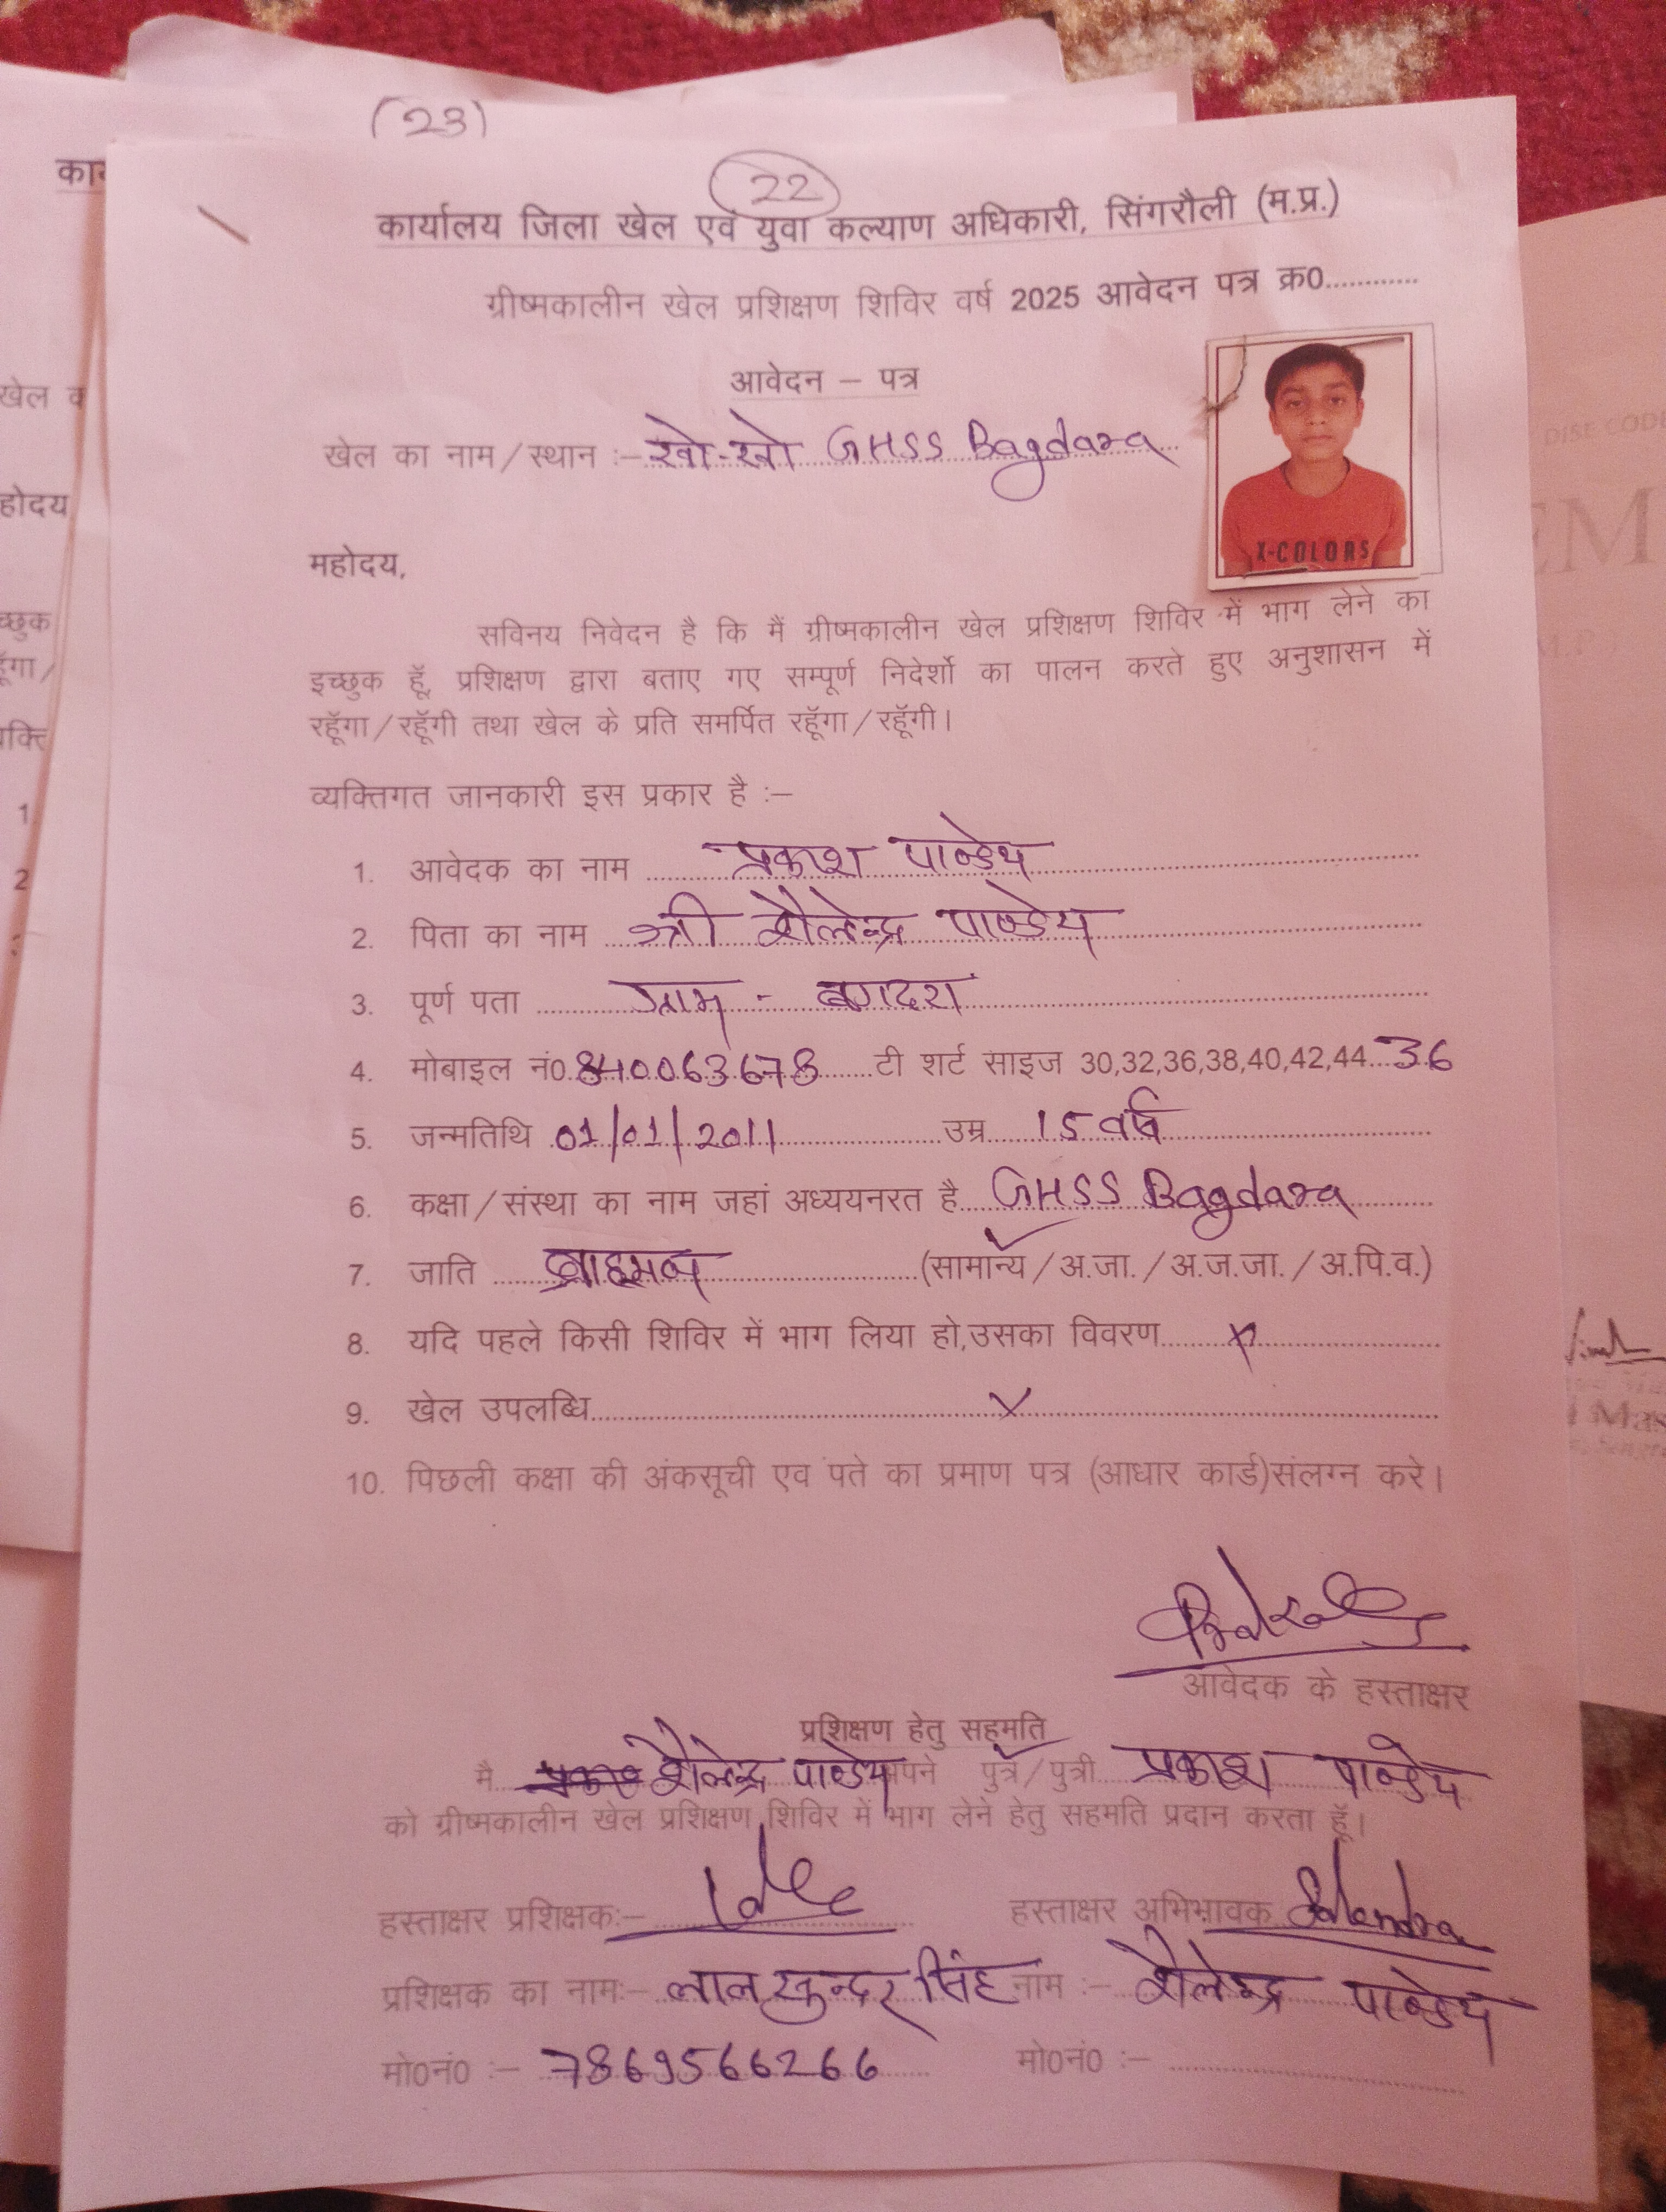 (23)
22
कार्यालय जिला खेल एवं युवा कल्याण अधिकारी, सिंगरौली (म.प्र.)
ग्रीष्मकालीन खेल प्रशिक्षण शिविर वर्ष 2025 आवेदन पत्र क्र0............
आवेदन – पत्र
खेल का नाम/स्थान :– खो-खो GHSS Bagdara
X-COLORS
महोदय,
सविनय निवेदन है कि मैं ग्रीष्मकालीन खेल प्रशिक्षण शिविर में भाग लेने का
इच्छुक हूॅ, प्रशिक्षण द्वारा बताए गए सम्पूर्ण निदेर्शो का पालन करते हुए अनुशासन में
रहूॅगा/रहूॅगी तथा खेल के प्रति समर्पित रहूॅगा/रहूॅगी।
व्यक्तिगत जानकारी इस प्रकार है :–
1. आवेदक का नाम प्रकाश पाण्डेय
2. पिता का नाम श्री शैलेन्द्र पाण्डेय
3. पूर्ण पता ग्राम - बगदरा
4. मोबाइल नं0 840063678 टी शर्ट साइज 30,32,36,38,40,42,44 36
5. जन्मतिथि 01/01/2011 उम्र 15 वर्ष
6. कक्षा/संस्था का नाम जहां अध्ययनरत है GHSS Bagdara
7. जाति ब्राहमण (सामान्य/अ.जा./अ.ज.जा./अ.पि.व.)
8. यदि पहले किसी शिविर में भाग लिया हो,उसका विवरण x
9. खेल उपलब्धि x
10. पिछली कक्षा की अंकसूची एव पते का प्रमाण पत्र (आधार कार्ड)संलग्न करे।
आवेदक के हस्ताक्षर
प्रशिक्षण हेतु सहमति
मै शैलेन्द्र पाण्डेय अपने पुत्र/पुत्री प्रकाश पाण्डेय
को ग्रीष्मकालीन खेल प्रशिक्षण शिविर में भाग लेने हेतु सहमति प्रदान करता हूॅ।
हस्ताक्षर प्रशिक्षक:– हस्ताक्षर अभिभावक
प्रशिक्षक का नाम:– लाल सुन्दर सिंह नाम :– शैलेन्द्र पाण्डेय
मो0नं0 :– 7869566266 मो0नं0 :–